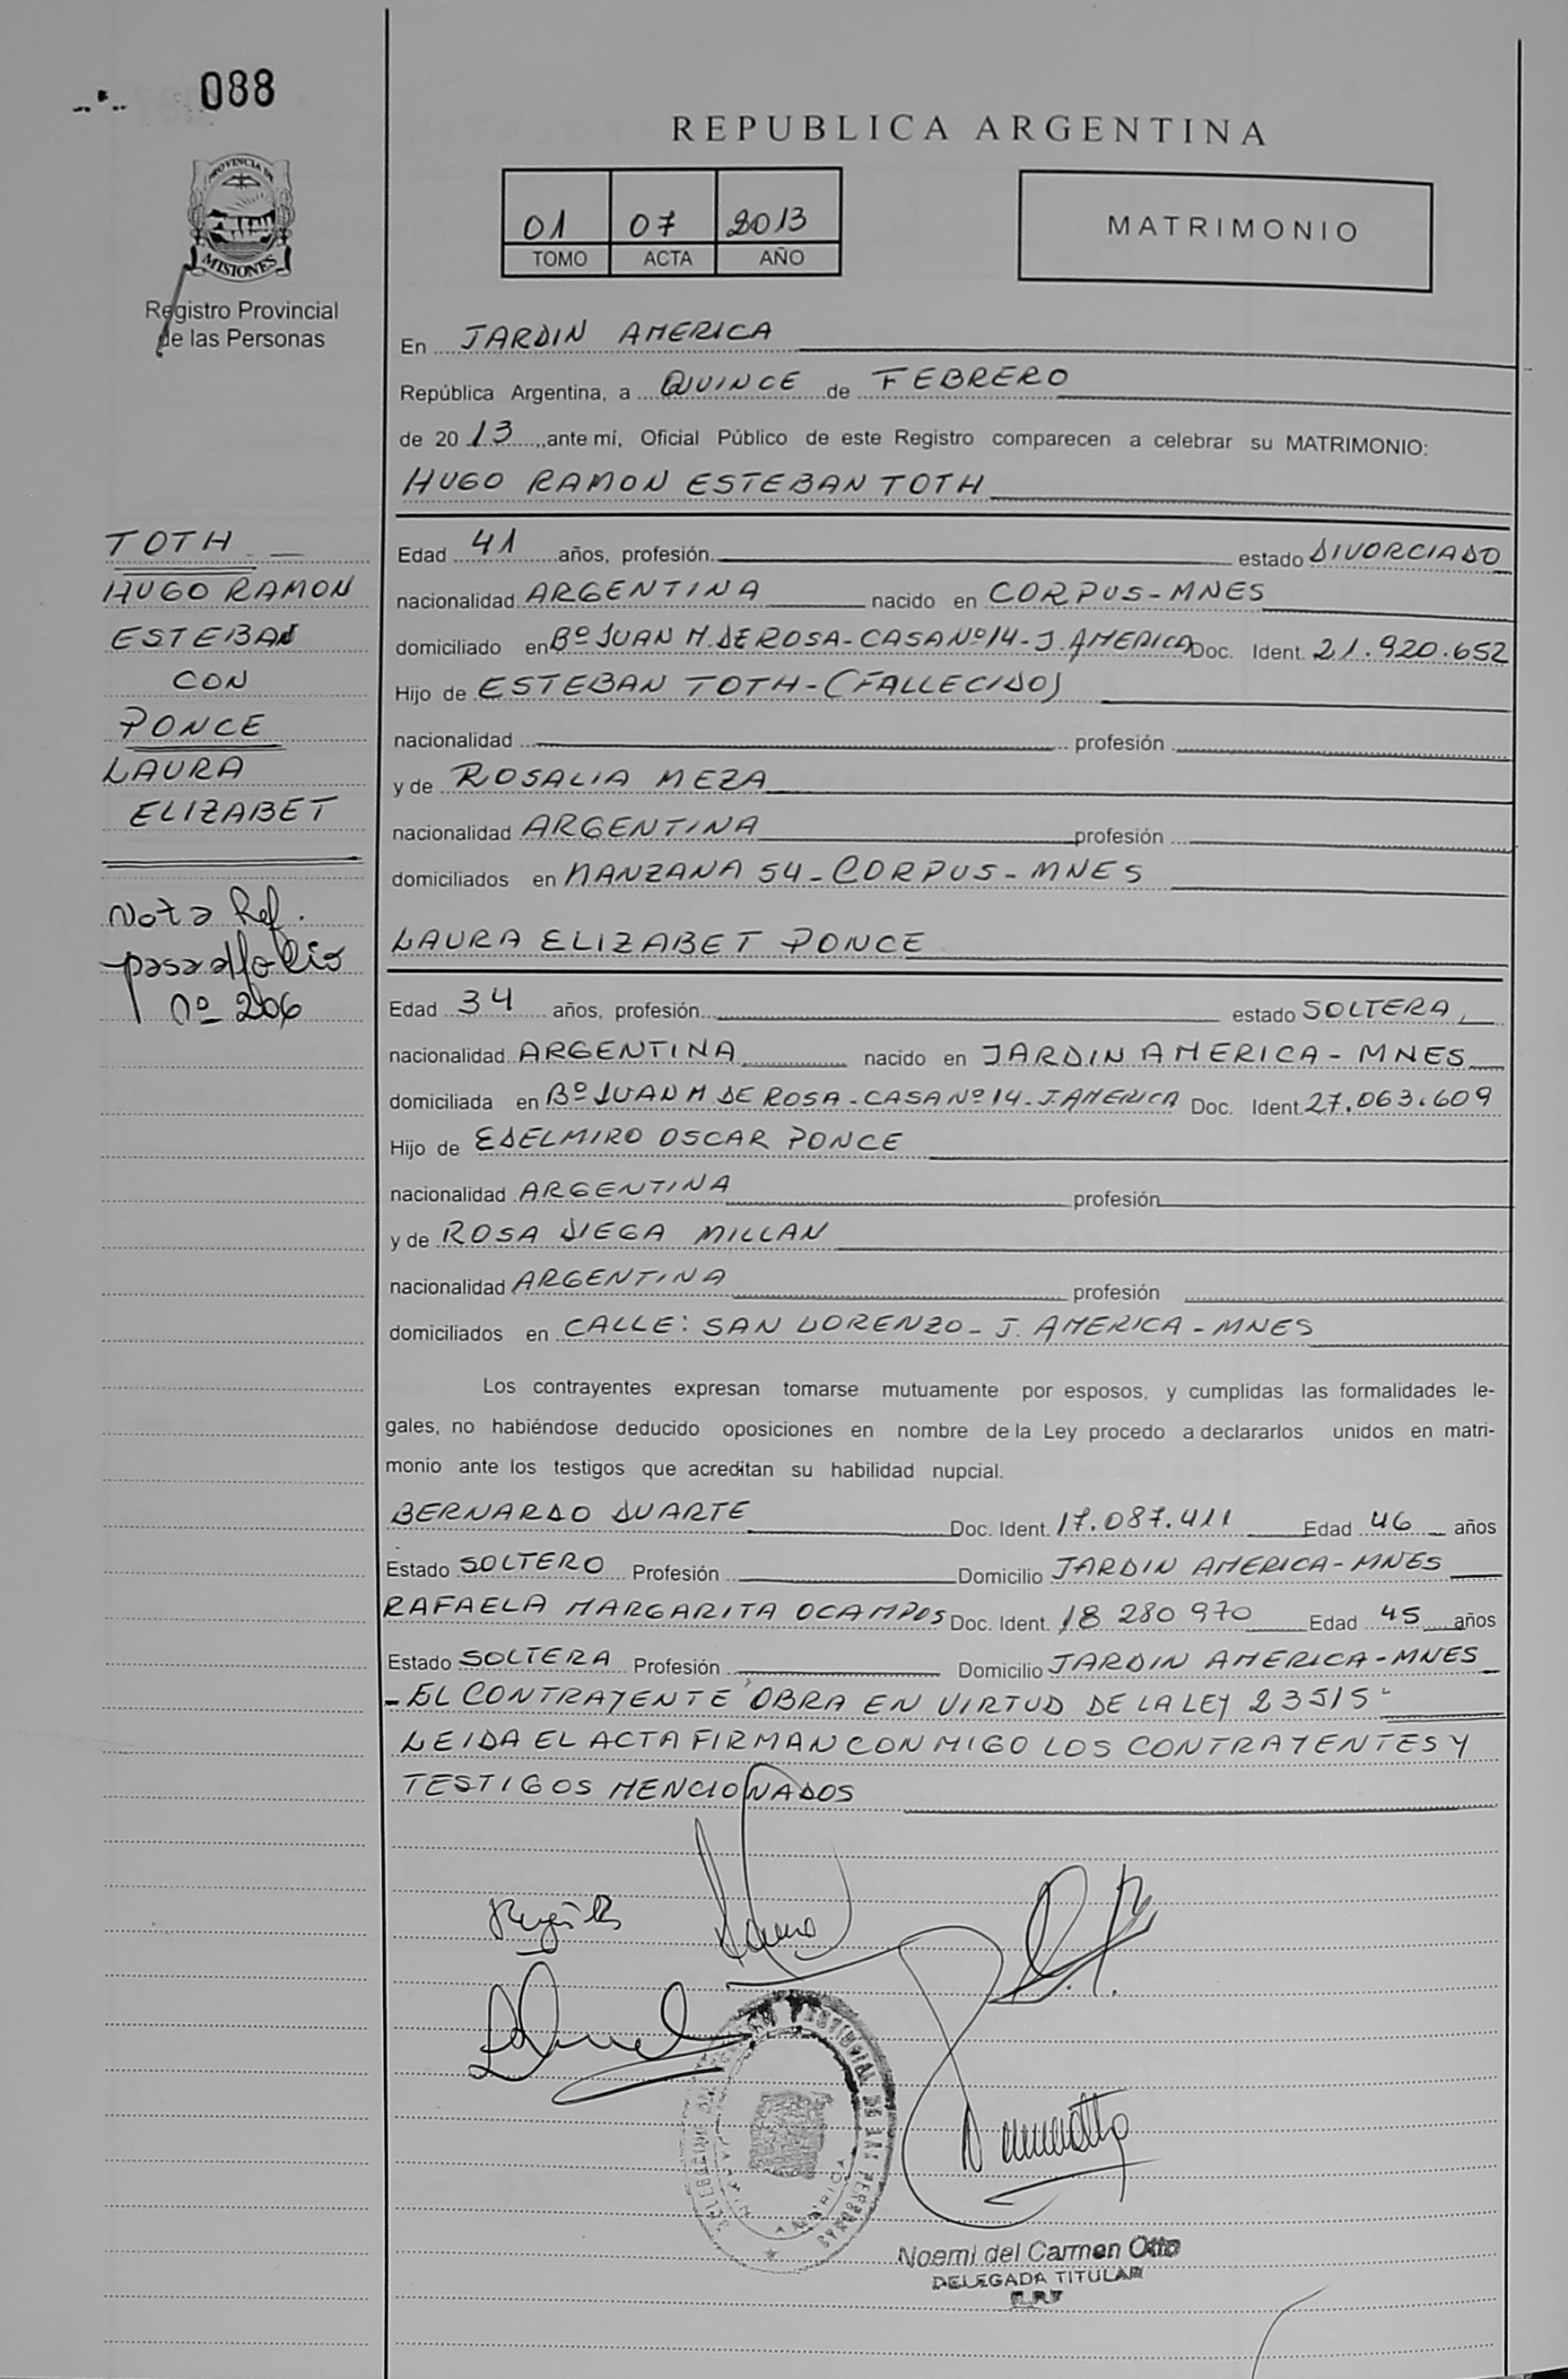 088
REPUBLICA ARGENTINA
PROVINCIA DE
MISIONES
Registro Provincial
de las Personas
01 07 2013
TOMO ACTA AÑO
MATRIMONIO
En JARDIN AMERICA
República Argentina, a QUINCE de FEBRERO
de 20 13 ,,ante mí, Oficial Público de este Registro comparecen a celebrar su MATRIMONIO:
HUGO RAMON ESTEBAN TOTH
TOTH
HUGO RAMON
ESTEBAN
CON
PONCE
LAURA
ELIZABET
Nota Ref.
pasa al folio
nº 206
Edad 41 años, profesión estado DIVORCIADO
nacionalidad ARGENTINA nacido en CORPUS-MNES
domiciliado en Bº JUAN M. DE ROSA-CASA Nº 14-J. AMERICA Doc. Ident. 21.920.652
Hijo de ESTEBAN TOTH-(FALLECIDO)
nacionalidad profesión
y de ROSALIA MEZA
nacionalidad ARGENTINA profesión
domiciliados en MANZANA 54-CORPUS-MNES
LAURA ELIZABET PONCE
Edad 34 años, profesión estado SOLTERA
nacionalidad ARGENTINA nacido en JARDIN AMERICA-MNES
domiciliada en Bº JUAN M DE ROSA-CASA Nº 14-J.AMERICA Doc. Ident. 27.063.609
Hijo de EDELMIRO OSCAR PONCE
nacionalidad ARGENTINA profesión
y de ROSA DIEGA MILLAN
nacionalidad ARGENTINA profesión
domiciliados en CALLE: SAN LORENZO-J. AMERICA-MNES
Los contrayentes expresan tomarse mutuamente por esposos, y cumplidas las formalidades le-
gales, no habiéndose deducido oposiciones en nombre de la Ley procedo a declararlos unidos en matri-
monio ante los testigos que acreditan su habilidad nupcial.
BERNARDO DUARTE Doc. Ident. 17.087.411 Edad 46 años
Estado SOLTERO Profesión Domicilio JARDIN AMERICA-MNES
RAFAELA MARGARITA OCAMPOS Doc. Ident. 18 280 970 Edad 45 años
Estado SOLTERA Profesión Domicilio JARDIN AMERICA-MNES
-EL CONTRAYENTE OBRA EN VIRTUD DE LA LEY 23515"
LEIDA EL ACTA FIRMAN CONMIGO LOS CONTRAYENTES Y
TESTIGOS MENCIONADOS
Noemi del Carmen Otto
DELEGADA TITULAR